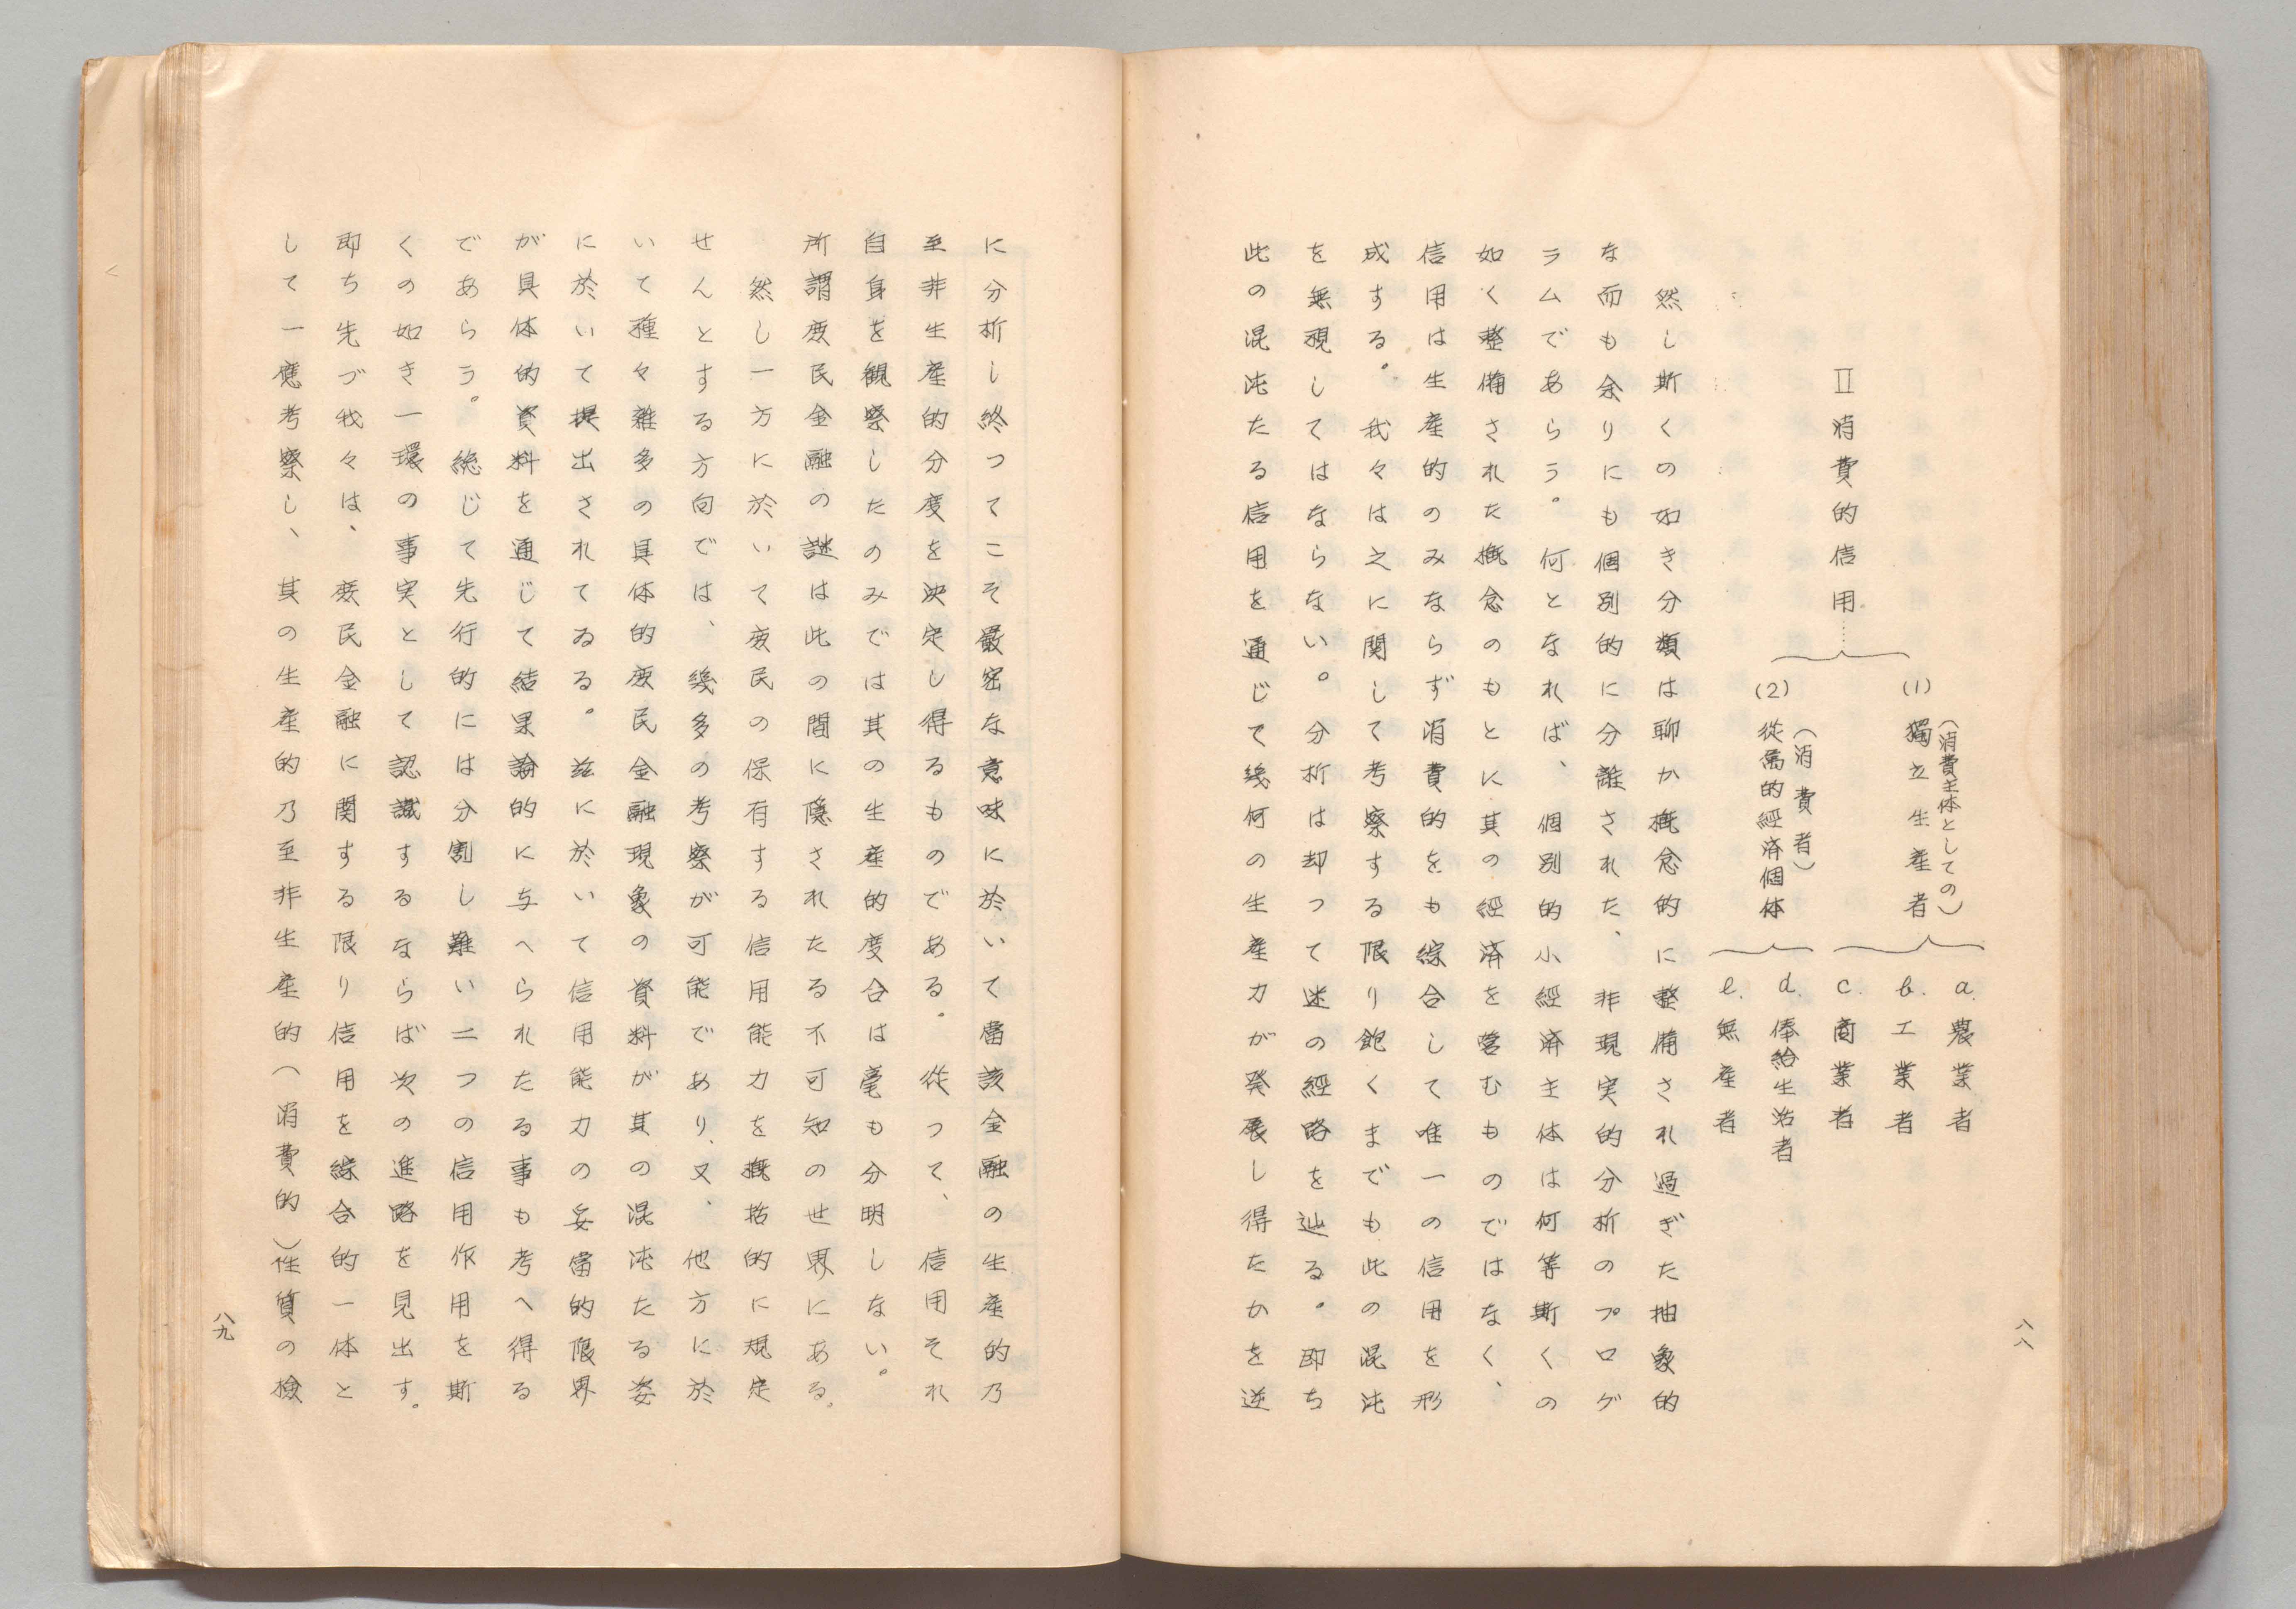 八八
Ⅱ 消費的信用……
(1) 獨立生産者
(消費主体としての)
a. 農業者
b. 工業者
c. 商業者
(2) 從属的經済個体
(消費者)
d. 俸給生活者
e. 無産者
然し斯くの如き分類は聊か概念的に整備され過ぎた抽象的
な而も余りにも個別的に分離された、非現実的分析のプログ
ラムであらう。何となれば、個別的小經済主体は何等斯くの
如く整備された概念のもとに其の經済を営むものではなく、
信用は生産的のみならず消費的をも綜合して唯一の信用を形
成する。我々は之に関して考察する限り飽くまでも此の混沌
を無視してはならない。分析は却つて迷の經路を辿る。即ち
此の混沌たる信用を通じて幾何の生産力が発展し得たかを逆
に分析し終つてこそ嚴密な意味に於いて當該金融の生産的乃
至非生産的分度を決定し得るものである。從つて、信用それ
自身を観察したのみでは其の生産的度合は毫も分明しない。
所謂庶民金融の謎は此の間に隱されたる不可知の世界にある。
然し一方に於いて庶民の保有する信用能力を概括的に規定
せんとする方向では、幾多の考察が可能であり、又、他方に於
いて種々雜多の具体的庶民金融現象の資料が其の混沌たる姿
に於いて提出されてゐる。茲に於いて信用能力の妥當的限界
が具体的資料を通じて結果論的に与へられたる事も考へ得る
であらう。総じて先行的には分割し難い二つの信用作用を斯
くの如き一環の事実として認識するならば次の進路を見出す。
即ち先づ我々は、庶民金融に関する限り信用を綜合的一体と
して一應考察し、其の生産的乃至非生産的(消費的)性質の檢
八九